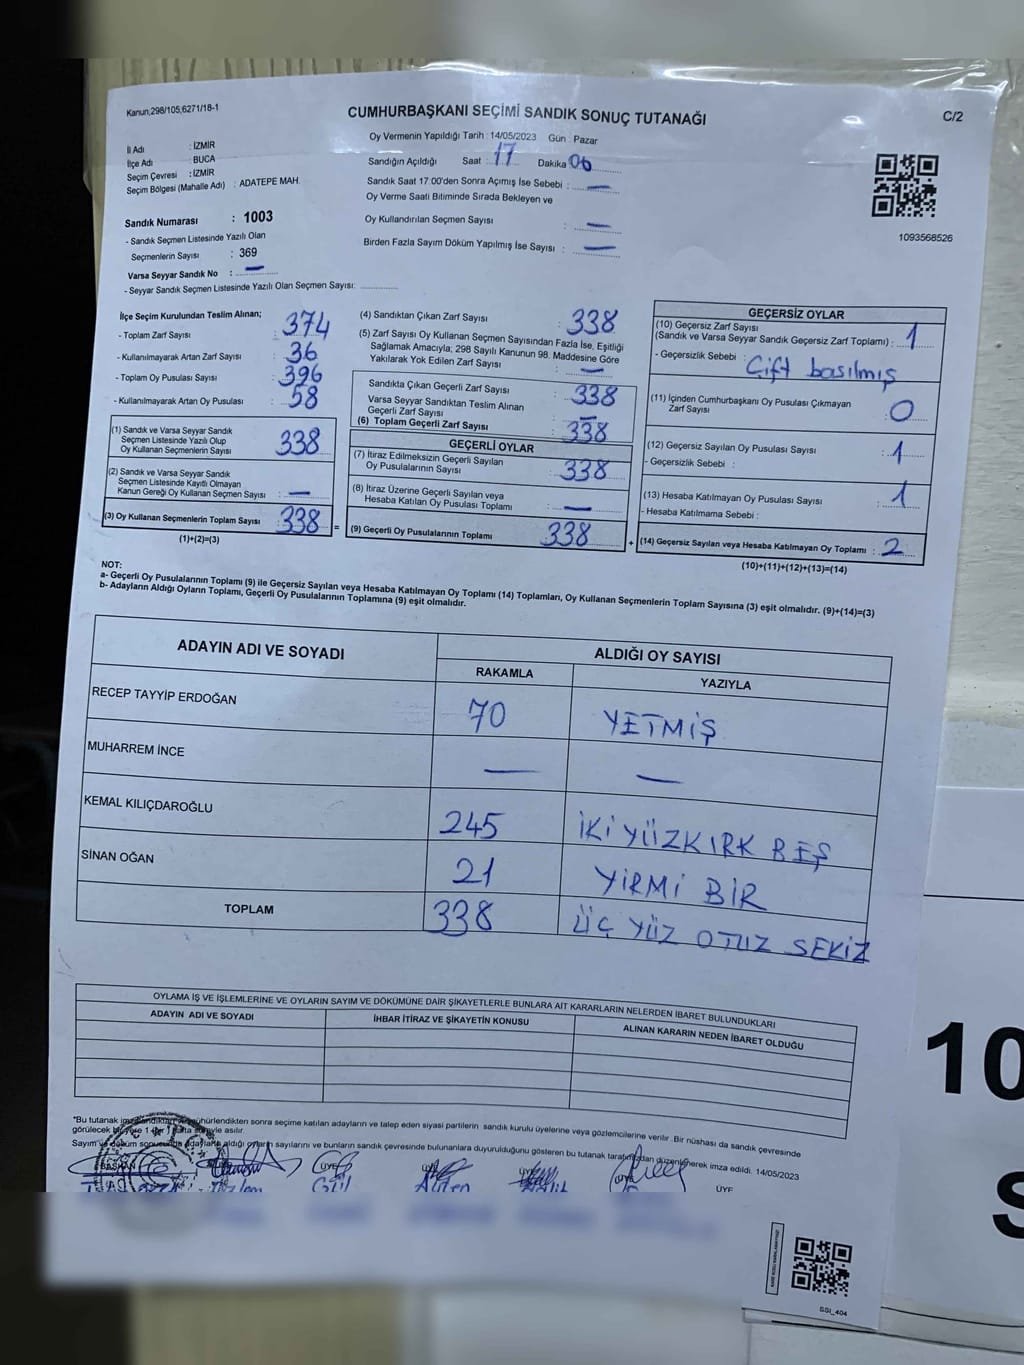 Kanun;298/105;6271/18-1
CUMHURBAŞKANI SEÇİMİ SANDIK SONUÇ TUTANAĞI
C/2
Oy Vermenin Yapıldığı Tarih : 14/05/2023 Gün : Pazar
İl Adı : İZMİR
İlçe Adı : BUCA
Seçim Çevresi : İZMİR
Seçim Bölgesi (Mahalle Adı) : ADATEPE MAH.
Sandığın Açıldığı Saat : 17 Dakika 06
Sandık Saat 17.00'den Sonra Açımış İse Sebebi : —
Oy Verme Saati Bitiminde Sırada Bekleyen ve
Oy Kullandırılan Seçmen Sayısı : —
Birden Fazla Sayım Döküm Yapılmış İse Sayısı : —
1093568526
Sandık Numarası : 1003
- Sandık Seçmen Listesinde Yazılı Olan
Seçmenlerin Sayısı : 369
Varsa Seyyar Sandık No : —
- Seyyar Sandık Seçmen Listesinde Yazılı Olan Seçmen Sayısı:
İlçe Seçim Kurulundan Teslim Alınan;
- Toplam Zarf Sayısı : 374
- Kullanılmayarak Artan Zarf Sayısı : 36
- Toplam Oy Pusulası Sayısı : 396
- Kullanılmayarak Artan Oy Pusulası : 58
(1) Sandık ve Varsa Seyyar Sandık
Seçmen Listesinde Yazılı Olup
Oy Kullanan Seçmenlerin Sayısı : 338
(2) Sandık ve Varsa Seyyar Sandık
Seçmen Listesinde Kayıtlı Olmayan
Kanun Gereği Oy Kullanan Seçmen Sayısı : —
(3) Oy Kullanan Seçmenlerin Toplam Sayısı : 338 =
(1)+(2)=(3)
(4) Sandıktan Çıkan Zarf Sayısı : 338
(5) Zarf Sayısı Oy Kullanan Seçmen Sayısından Fazla İse, Eşitliği
Sağlamak Amacıyla; 298 Sayılı Kanunun 98. Maddesine Göre
Yakılarak Yok Edilen Zarf Sayısı : —
Sandıkta Çıkan Geçerli Zarf Sayısı : 338
Varsa Seyyar Sandıktan Teslim Alınan
Geçerli Zarf Sayısı : —
(6) Toplam Geçerli Zarf Sayısı : 338
GEÇERLİ OYLAR
(7) İtiraz Edilmeksizin Geçerli Sayılan
Oy Pusulalarının Sayısı : 338
(8) İtiraz Üzerine Geçerli Sayılan veya
Hesaba Katılan Oy Pusulası Toplamı : —
(9) Geçerli Oy Pusulalarının Toplamı 338 +
GEÇERSİZ OYLAR
(10) Geçersiz Zarf Sayısı
(Sandık ve Varsa Seyyar Sandık Geçersiz Zarf Toplamı) : 1
- Geçersizlik Sebebi : Çift basılmış
(11) İçinden Cumhurbaşkanı Oy Pusulası Çıkmayan
Zarf Sayısı : 0
(12) Geçersiz Sayılan Oy Pusulası Sayısı : 1
- Geçersizlik Sebebi :
(13) Hesaba Katılmayan Oy Pusulası Sayısı : 1
- Hesaba Katılmama Sebebi :
(14) Geçersiz Sayılan veya Hesaba Katılmayan Oy Toplamı : 2
(10)+(11)+(12)+(13)=(14)
NOT:
a- Geçerli Oy Pusulalarının Toplamı (9) ile Geçersiz Sayılan veya Hesaba Katılmayan Oy Toplamı (14) Toplamları, Oy Kullanan Seçmenlerin Toplam Sayısına (3) eşit olmalıdır. (9)+(14)=(3)
b- Adayların Aldığı Oyların Toplamı, Geçerli Oy Pusulalarının Toplamına (9) eşit olmalıdır.
ADAYIN ADI VE SOYADI
ALDIĞI OY SAYISI
RAKAMLA YAZIYLA
RECEP TAYYİP ERDOĞAN 70 YETMİŞ
MUHARREM İNCE — —
KEMAL KILIÇDAROĞLU 245 İKİ YÜZKIRK BEŞ
SİNAN OĞAN 21 YİRMİ BİR
TOPLAM 338 ÜÇ YÜZ OTUZ SEKİZ
OYLAMA İŞ VE İŞLEMLERİNE VE OYLARIN SAYIM VE DÖKÜMÜNE DAİR ŞİKAYETLERLE BUNLARA AİT KARARLARIN NELERDEN İBARET BULUNDUKLARI
ADAYIN ADI VE SOYADI İHBAR İTİRAZ VE ŞİKAYETİN KONUSU ALINAN KARARIN NEDEN İBARET OLDUĞU
*Bu tutanak sonra seçime katılan adayların ve talep eden siyasi partilerin sandık kurulu üyelerine veya gözlemcilerine verilir. Bir nüshası da sandık çevresinde
görülecek asılır.
Sayım aldığı oyların sayılarını ve bunların sandık çevresinde bulunanlara duyurulduğunu gösteren bu tutanak tarafımızdan düzenlenerek imza edildi. 14/05/2023
BAŞKAN ÜYE ÜYE ÜYE ÜYE ÜYE
Gül
SSI_404
10
S